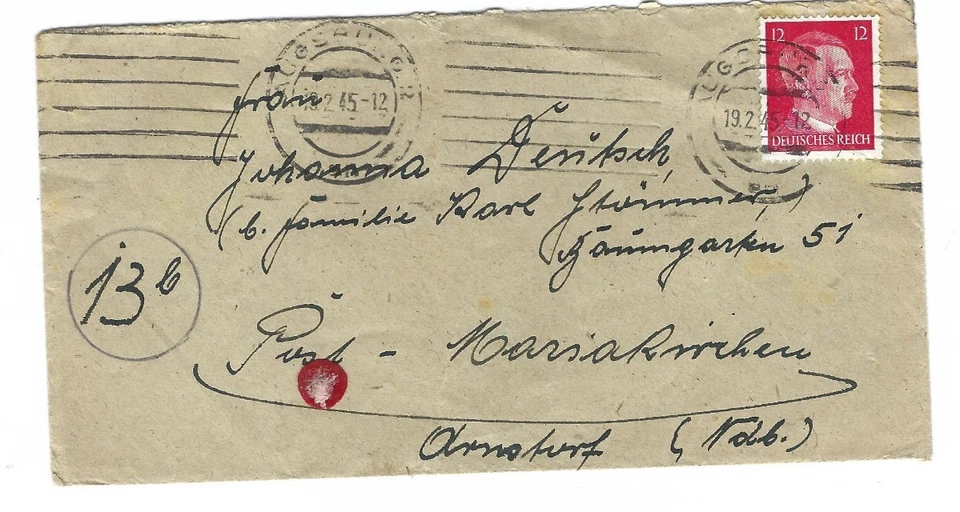 12 12
DEUTSCHES REICH
AUGSBURG 2
19.2.45-12
19.2.45-12
Frau
Johanna Deutsch,
(b. Familie Karl Stömmer,)
Baumgarten 51
13b
Post - Mariakirchen
Arnstorf (Ndb.)